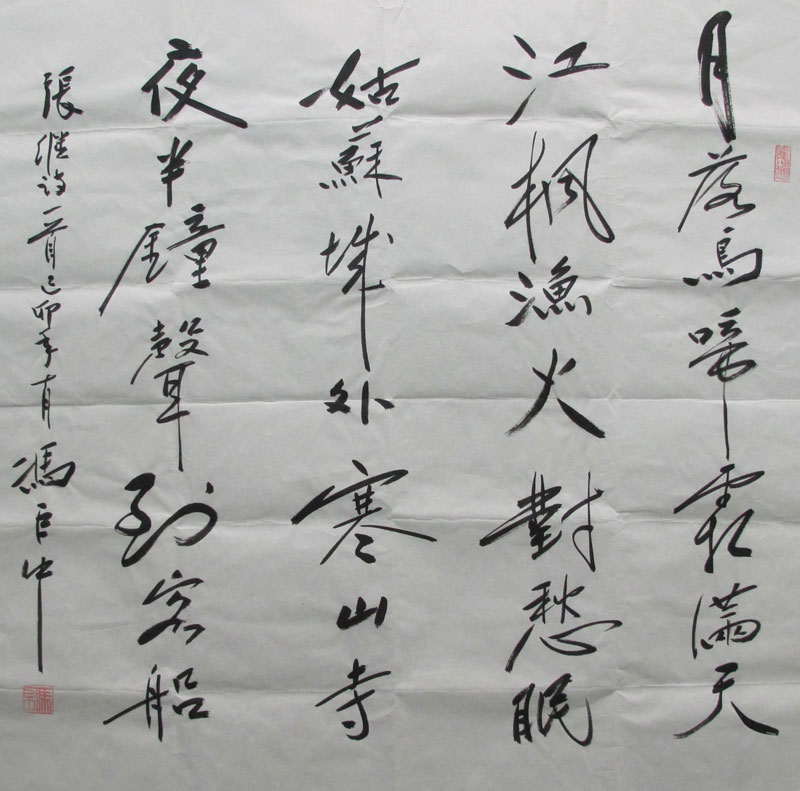 月落烏啼霜滿天
江楓漁火對愁眠
姑蘇城外寒山寺
夜半鐘聲到客船
張継詩一首己卯年有馮臣中